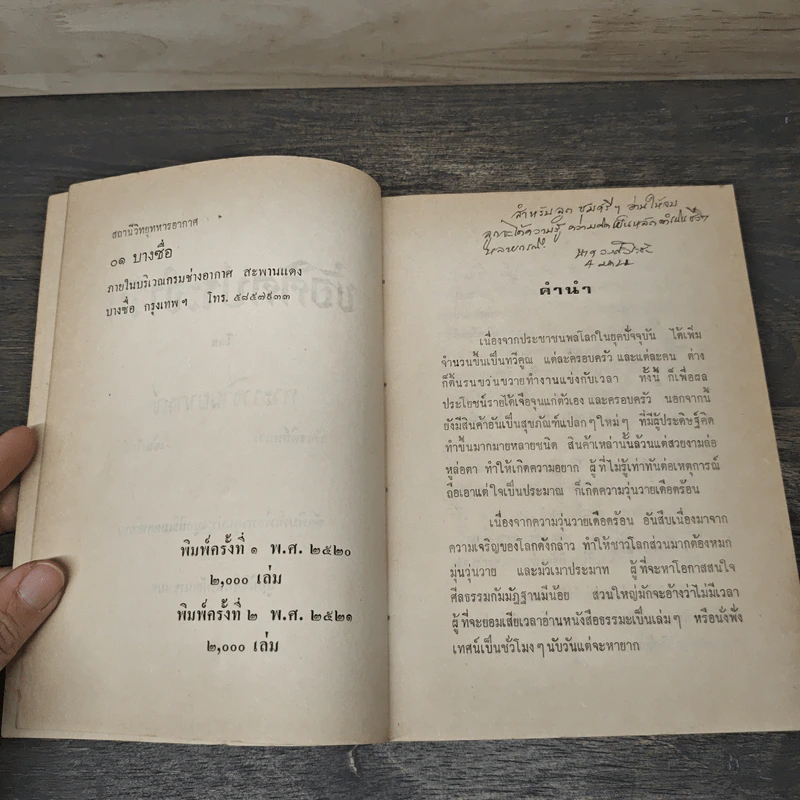 สถานีวิทยุทหารอากาศ
๐๑ บางซื่อ
ภายในบริเวณกรมช่างอากาศ สะพานแดง
บางซื่อ กรุงเทพฯ โทร. ๕๘๕๗๙๓๓
พิมพ์ครั้งที่ ๑ พ.ศ. ๒๕๒๐
๒,๐๐๐ เล่ม
พิมพ์ครั้งที่ ๒ พ.ศ. ๒๕๒๑
๒,๐๐๐ เล่ม
สำหรับ ลูก ๆ อ่านให้จบ
ลูกจะได้ความรู้
คำนำ
เนื่องจากประชาชนพลโลกในยุคปัจจุบัน ได้เพิ่ม
จำนวนขึ้นเป็นทวีคูณ แต่ละครอบครัว และแต่ละคน ต่าง
ก็ดิ้นรนขวนขวายทำงานแข่งกับเวลา ทั้งนี้ ก็เพื่อผล
ประโยชน์รายได้เจือจุนแก่ตัวเอง และครอบครัว นอกจากนี้
ยังมีสินค้าอันเป็นสุขภัณฑ์แปลกๆใหม่ๆ ที่มีผู้ประดิษฐ์คิด
ทำขึ้นมากมายหลายชนิด สินค้าเหล่านั้นล้วนแต่สวยงามล่อ
หูล่อตา ทำให้เกิดความอยาก ผู้ที่ไม่รู้เท่าทันต่อเหตุการณ์
ถือเอาแต่ใจเป็นประมาณ ก็เกิดความวุ่นวายเดือดร้อน
เนื่องจากความวุ่นวายเดือดร้อน อันสืบเนื่องมาจาก
ความเจริญของโลกดังกล่าว ทำให้ชาวโลกส่วนมากต้องหมก
มุ่นวุ่นวาย และมัวเมาประมาท ผู้ที่จะหาโอกาสสนใจ
ศีลธรรมกัมมัฏฐานมีน้อย ส่วนใหญ่มักจะอ้างว่าไม่มีเวลา
ผู้ที่จะยอมเสียเวลาอ่านหนังสือธรรมะเป็นเล่มๆ หรือนั่งฟัง
เทศน์เป็นชั่วโมงๆนับวันแต่จะหายาก